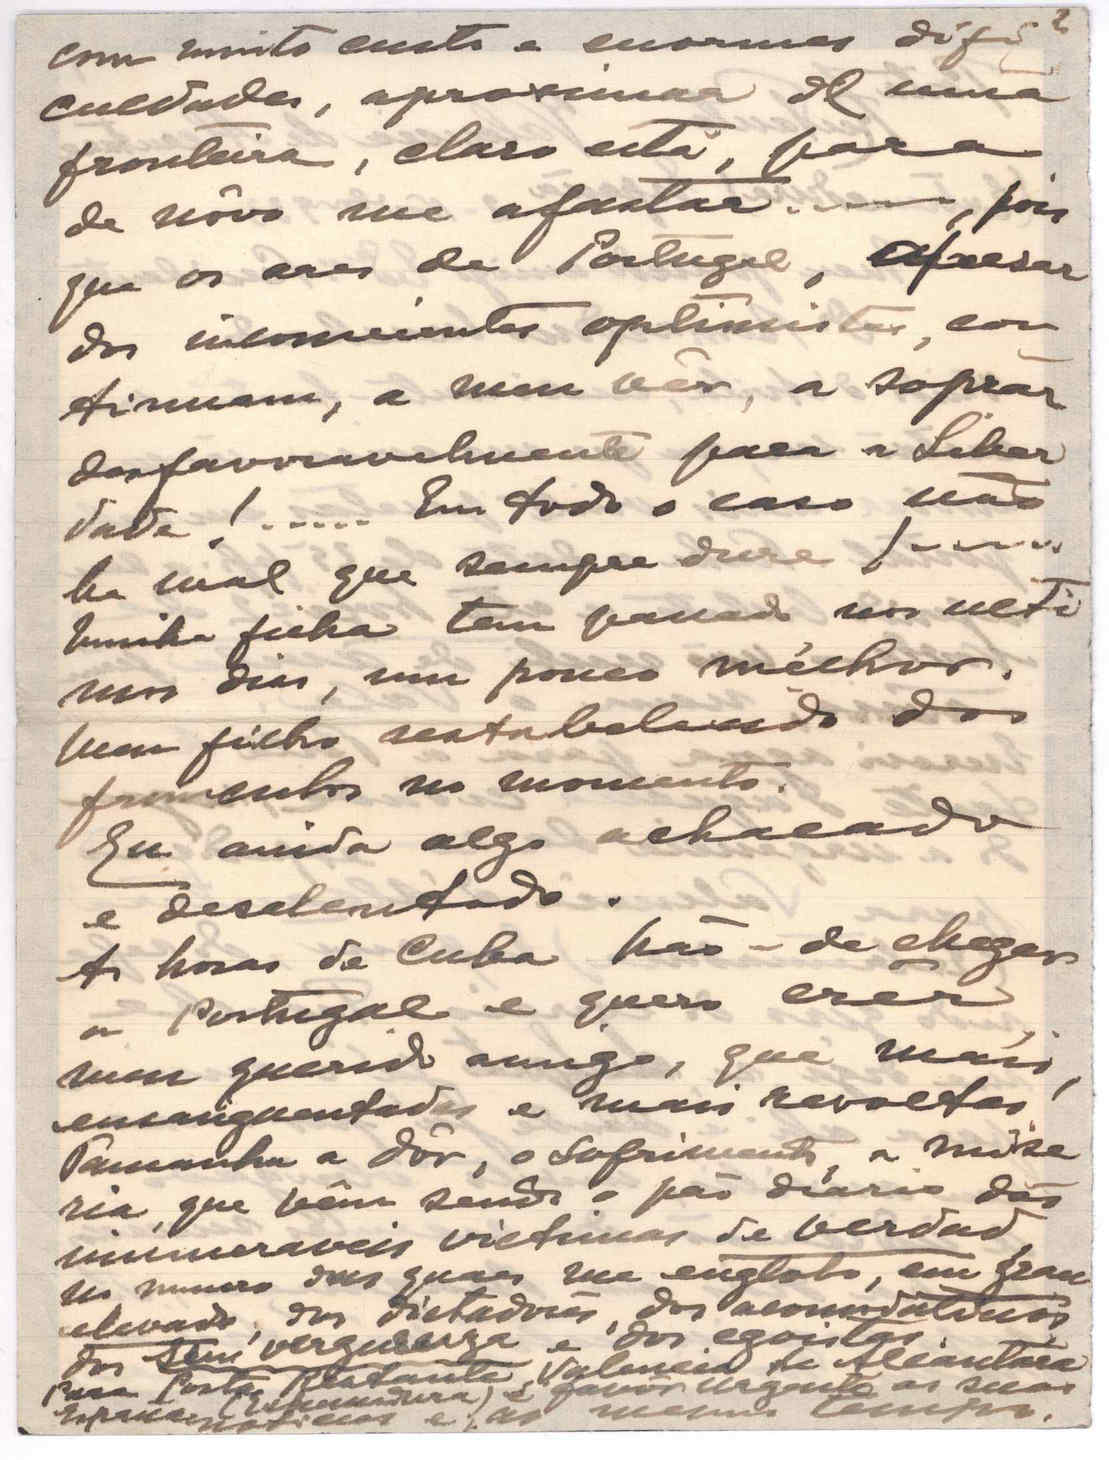 2
com muito custo e enormes difi
culdades, aproximar de uma
fronteira, claro está, para
de nôvo me afastar ......, pois
que os ares de Portugal, apesar
dos inconscientes optimistas, con
tinuam, a meu vêr, a soprár
desfavoravelmente para a Liber
dade! ...... Em todo o caso não
ha mal que sempre dure! ......
Minha filha tem passado nos ulti
mos dias, um pouco mélhor.
Meu filho restabelecido dos
frunculos no momento.
Eu ainda algo achacado
e desalentado.
As horas de Cuba hão-de chegar
a Portugal e quero crêr
meu querido amigo, que máis
ensanguentadas e mais revoltas!
Tamanha a dôr, o sofrimento, a misé
ria, que vêm sendo o pão diário das
inumeraveis victimas de verdad,
no numero das quaes me englobo, em grau
elevado, dos dictadores, dos acomodaticios,
dos sem vergüenza e dos egoistas.
Para Posta Restante, Valencia de Alcantára
España (Extremadura) é favôr urgente as suas
noticias e, ao mesmo tempo.